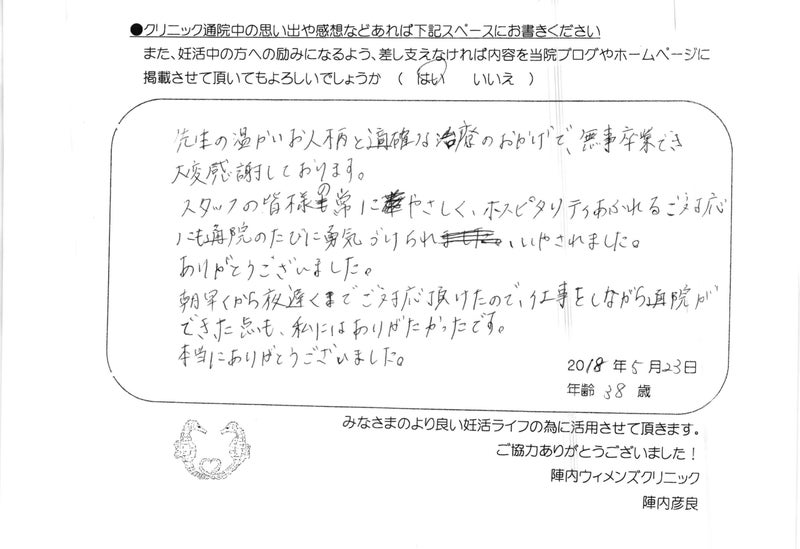 ●クリニック通院中の思い出や感想などあれば下記スペースにお書きください
また、妊活中の方への励みになるよう、差し支えなければ内容を当院ブログやホームページに
掲載させて頂いてもよろしいでしょうか （ はい いいえ ）
先生の温かいお人柄と適確な治療のおかげで、無事卒業でき
大変感謝しております。
スタッフの皆様の常にやさしく、ホスピタリティあふれるご対応
にも通院のたびに勇気づけられ、いやされました。
ありがとうございました。
朝早くから夜遅くまでご対応頂けたので、仕事をしながら通院が
できた点も、私にはありがたかったです。
本当にありがとうございました。
2018 年 5 月 23 日
年齢 38 歳
みなさまのより良い妊活ライフの為に活用させて頂きます。
ご協力ありがとうございました！
陣内ウィメンズクリニック
陣内彦良